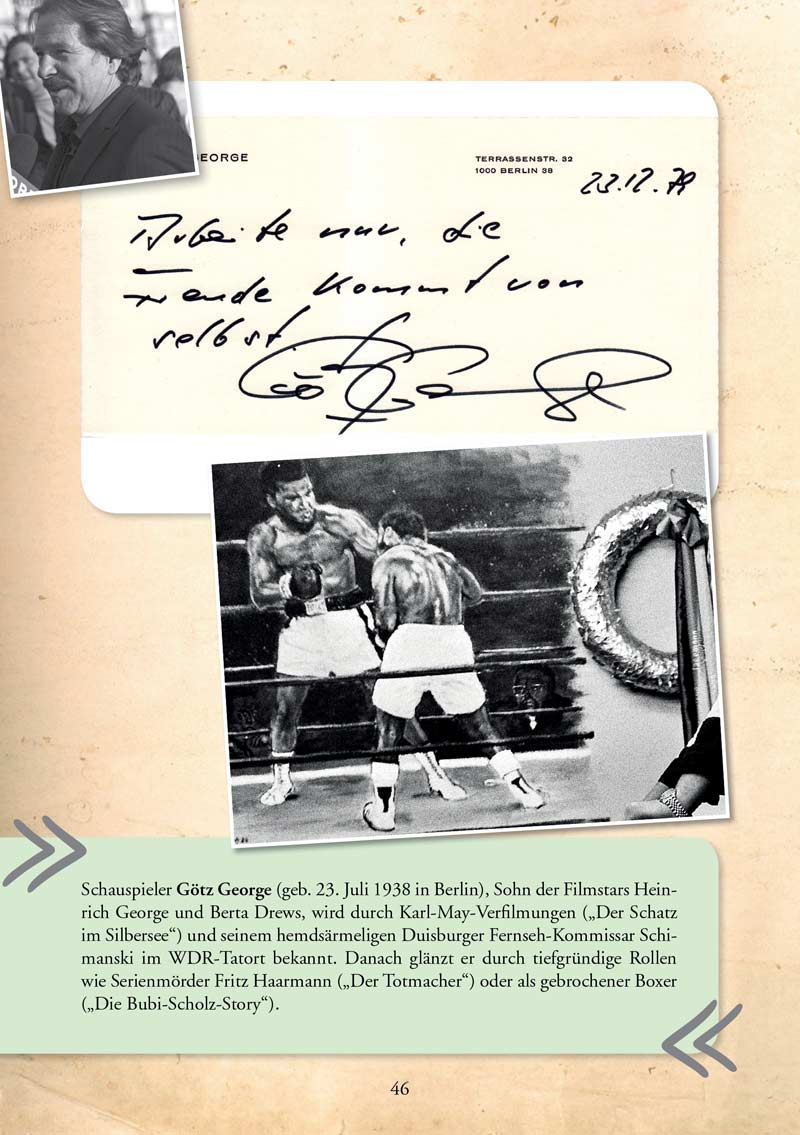 GEORGE
TERRASSENSTR. 32
1000 BERLIN 38
23.12.79
Arbeite nur, die
Freude kommt von
selbst
Götz George
Schauspieler Götz George (geb. 23. Juli 1938 in Berlin), Sohn der Filmstars Hein-
rich George und Berta Drews, wird durch Karl-May-Verfilmungen („Der Schatz
im Silbersee“) und seinem hemdsärmeligen Duisburger Fernseh-Kommissar Schi-
manski im WDR-Tatort bekannt. Danach glänzt er durch tiefgründige Rollen
wie Serienmörder Fritz Haarmann („Der Totmacher“) oder als gebrochener Boxer
(„Die Bubi-Scholz-Story“).
46